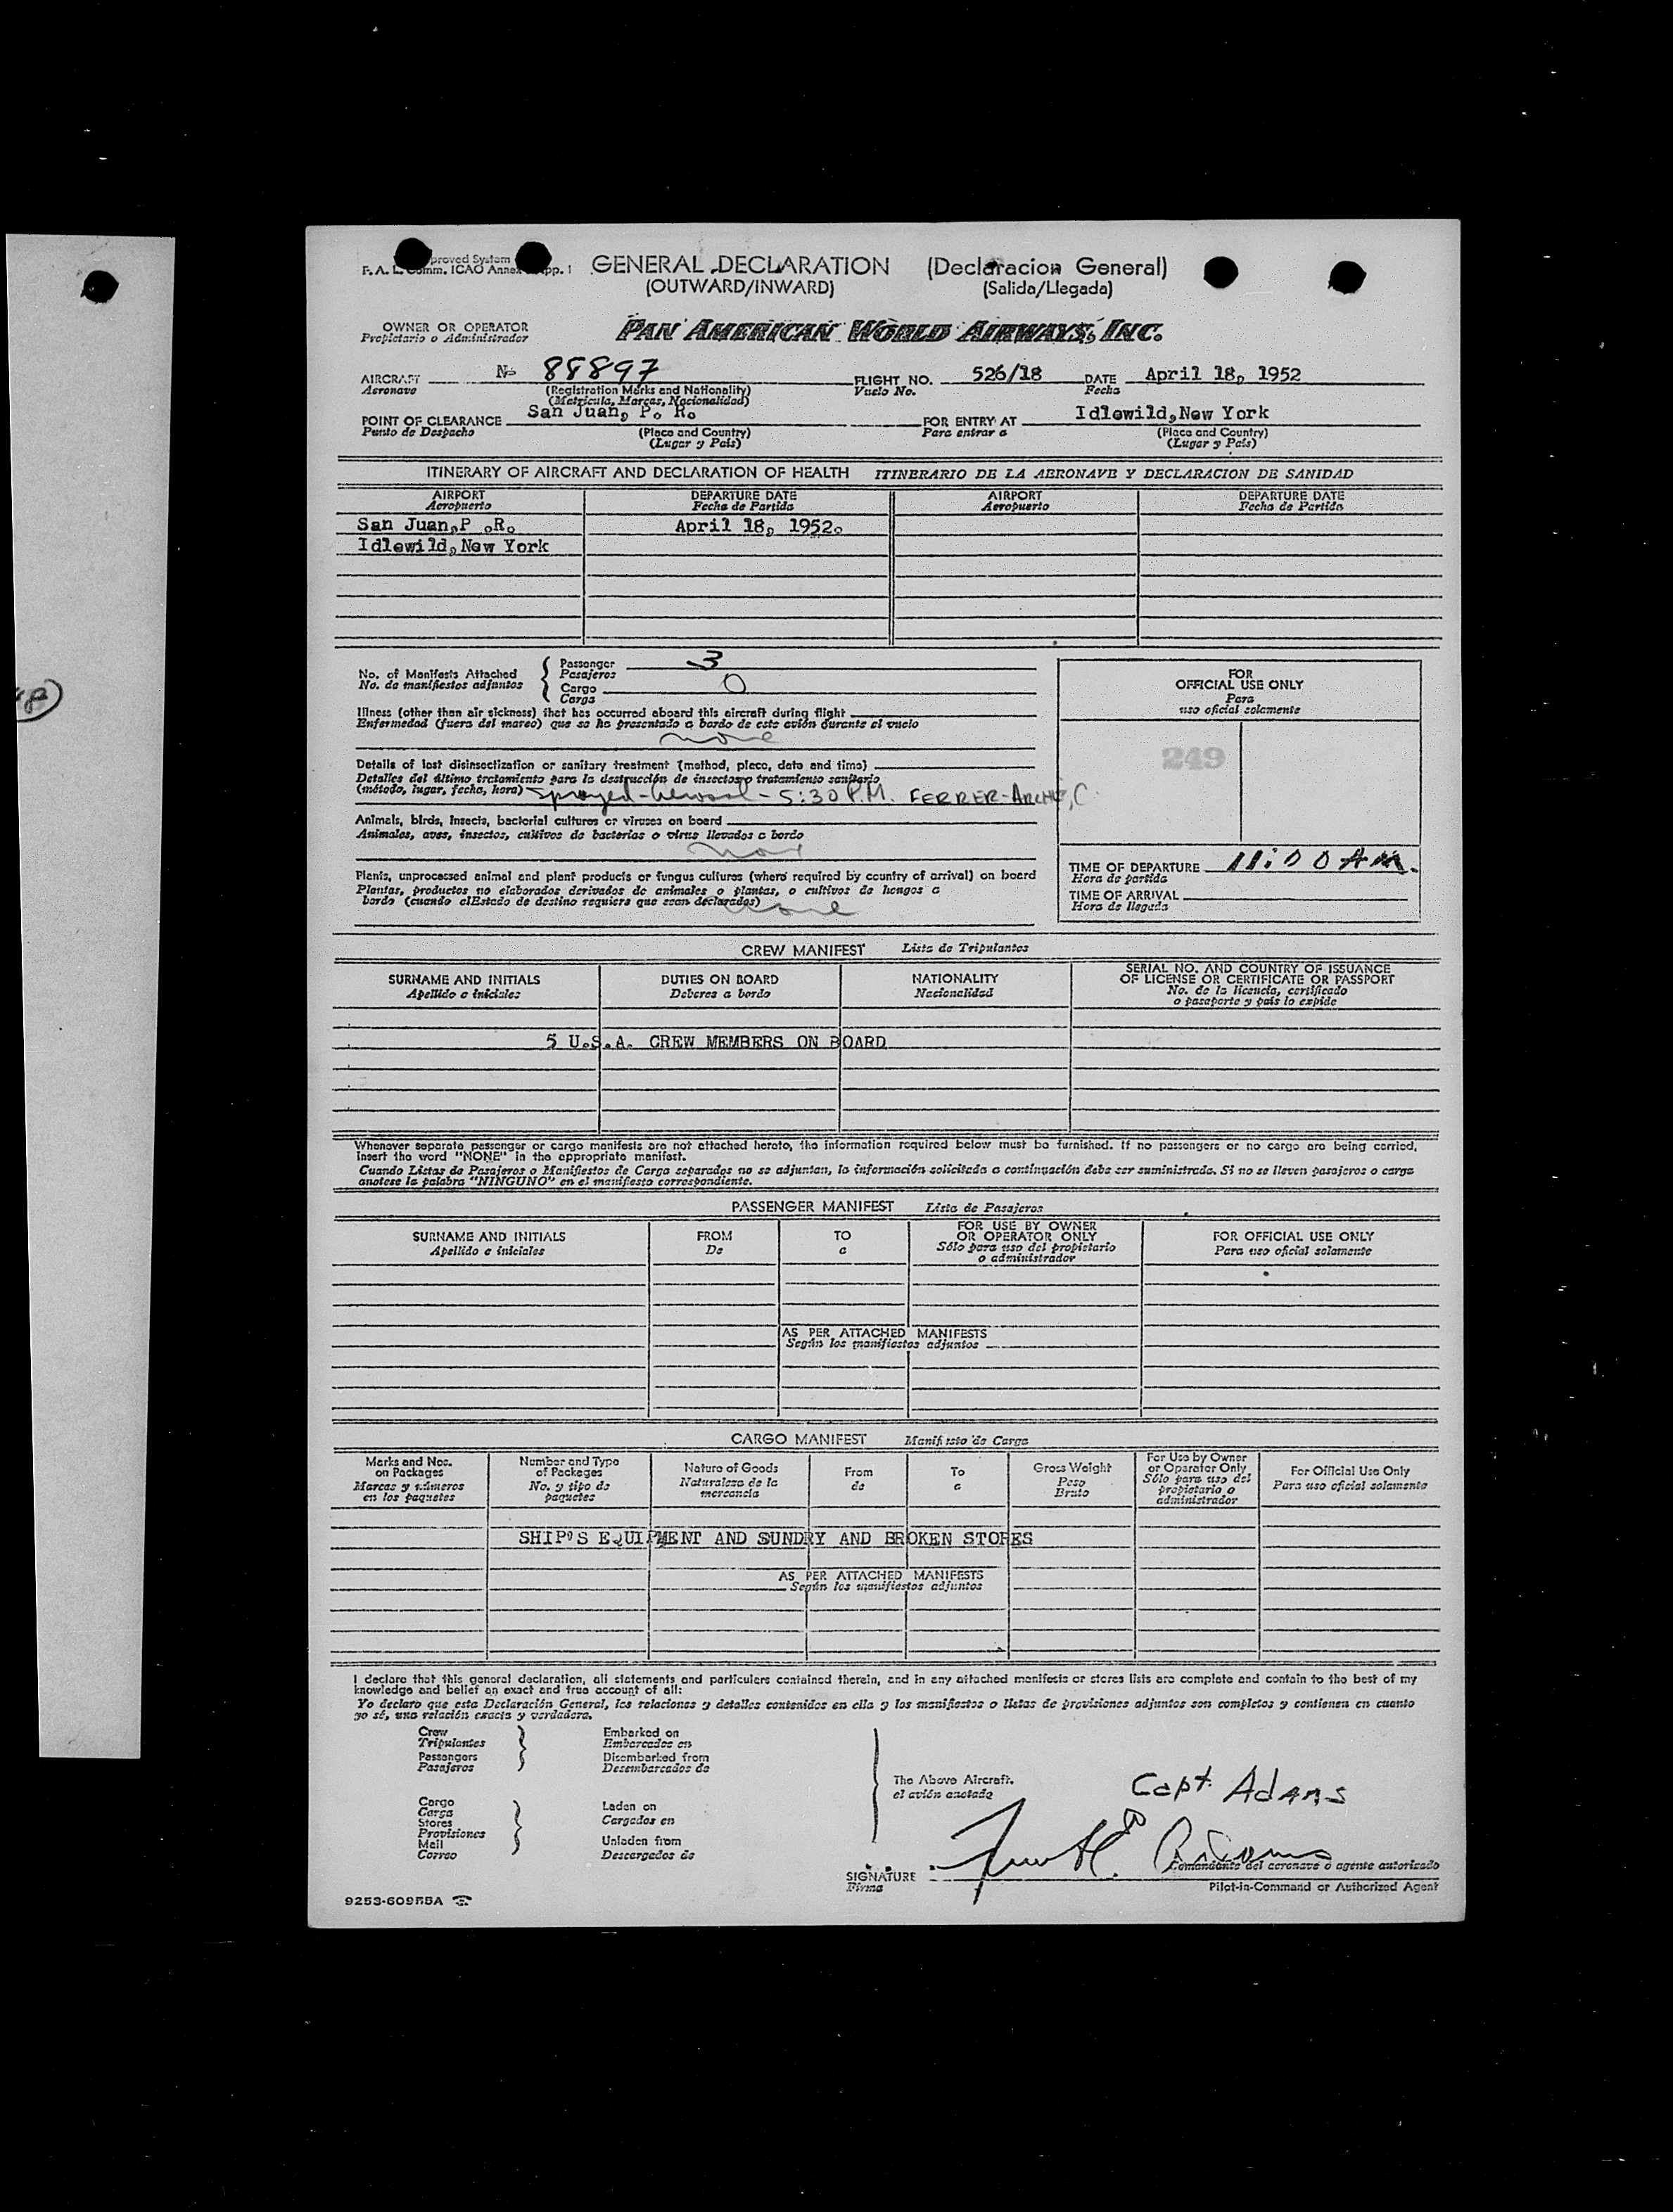 proved System
F. A. L. Comm. ICAO Annex pp. 1
GENERAL DECLARATION (Declaracion General)
(OUTWARD/INWARD) (Salida/Llegada)
OWNER OR OPERATOR
Propietario o Administrador
PAN AMERICAN WORLD AIRWAYS, INC.
AIRCRAFT No 88897 FLIGHT NO. 526/18 DATE April 18, 1952
Aeronave (Registration Marks and Nationality) Vuelo No. Fecha
(Matricula, Marcas, Nacionalidad)
POINT OF CLEARANCE San Juan, P. R. FOR ENTRY AT Idlewild, New York
Punto de Despacho (Place and Country) Para entrar a (Place and Country)
(Lugar y País) (Lugar y País)
ITINERARY OF AIRCRAFT AND DECLARATION OF HEALTH ITINERARIO DE LA AERONAVE Y DECLARACION DE SANIDAD
AIRPORT DEPARTURE DATE AIRPORT DEPARTURE DATE
Aeropuerto Fecha de Partida Aeropuerto Fecha de Partida
San Juan,P .R. April 18, 1952.
Idlewild, New York
No. of Manifests Attached Passenger 3
No. de manifiestos adjuntos Pasajeros
Cargo 0
Carga
Illness (other than air sickness) that has occurred aboard this aircraft during flight
Enfermedad (fuera del mareo) que se ha presentado a bordo de este avión durante el vuelo
none
Details of last disinsectization or sanitary treatment (method, place, date and time)
Detalles del último tratamiento para la destrucción de insectos o tratamiento sanitario
(método, lugar, fecha, hora) Sprayed - Aerosol - 5:30 P.M. FERRER-
Animals, birds, insects, bacterial cultures or viruses on board
Animales, aves, insectos, cultivos de bacterias o virus llevados a bordo
Plants, unprocessed animal and plant products or fungus cultures (where required by country of arrival) on board
Plantas, productos no elaborados derivados de animales o plantas, o cultivos de hongos a
bordo (cuando elEstado de destino requiera que sean declarados) none
FOR
OFFICIAL USE ONLY
Para
uso oficial solamente
249
TIME OF DEPARTURE 11:00 AM.
Hora de partida
TIME OF ARRIVAL
Hora de llegada
CREW MANIFEST Lista de Tripulantes
SURNAME AND INITIALS DUTIES ON BOARD NATIONALITY SERIAL NO. AND COUNTRY OF ISSUANCE
OF LICENSE OR CERTIFICATE OR PASSPORT
Apellido e iniciales Deberes a bordo Nacionalidad No. de la licencia, certificado
o pasaporte y país lo expide
5 U.S.A. CREW MEMBERS ON BOARD
Whenever separate passenger or cargo manifests are not attached hereto, the information required below must be furnished. If no passengers or no cargo are being carried,
insert the word "NONE" in the appropriate manifest.
Cuando Listas de Pasajeros o Manifiestos de Carga separados no se adjuntan, la información solicitada a continuación debe ser suministrada. Si no se lleven pasajeros o carga
anotese la palabra "NINGUNO" en el manifiesto correspondiente.
PASSENGER MANIFEST Lista de Pasajeros
SURNAME AND INITIALS FROM TO FOR USE BY OWNER
OR OPERATOR ONLY FOR OFFICIAL USE ONLY
Apellido e iniciales De a Sólo para uso del propietario
o administrador Para uso oficial solamente
AS PER ATTACHED MANIFESTS
Según los manifiestos adjuntos
CARGO MANIFEST Manifiesto de Carga
Marks and Nos.
on Packages
Marcas y números
en los paquetes
Number and Type
of Packages
No. y tipo de
paquetes
Nature of Goods
Naturaleza de la
mercancia
From
de
To
a
Gross Weight
Peso
Bruto
For Use by Owner
or Operator Only
Sólo para uso del
propietario o
administrador
For Official Use Only
Para uso oficial solamente
SHIP'S EQUIPMENT AND SUNDRY AND BROKEN STORES
AS PER ATTACHED MANIFESTS
Según los manifiestos adjuntos
I declare that this general declaration, all statements and particulars contained therein, and in any attached manifests or stores lists are complete and contain to the best of my
knowledge and belief an exact and true account of all:
Yo declaro que esta Declaración General, las relaciones y detalles contenidos en ella y los manifiestos o listas de provisiones adjuntos son completos y contienen en cuanto
yo sé, una relación exacta y verdadera.
Crew
Tripulantes
Passengers
Pasajeros
Embarked on
Embarcados en
Disembarked from
Desembarcados de
Cargo
Carga
Stores
Provisiones
Mail
Correo
Laden on
Cargados en
Unladen from
Descargados de
The Above Aircraft.
el avión anotado
Capt. Adams
SIGNATURE
Firma
Comandante del aeronave o agente autorizado
Pilot-in-Command or Authorized Agent
9253-60955A